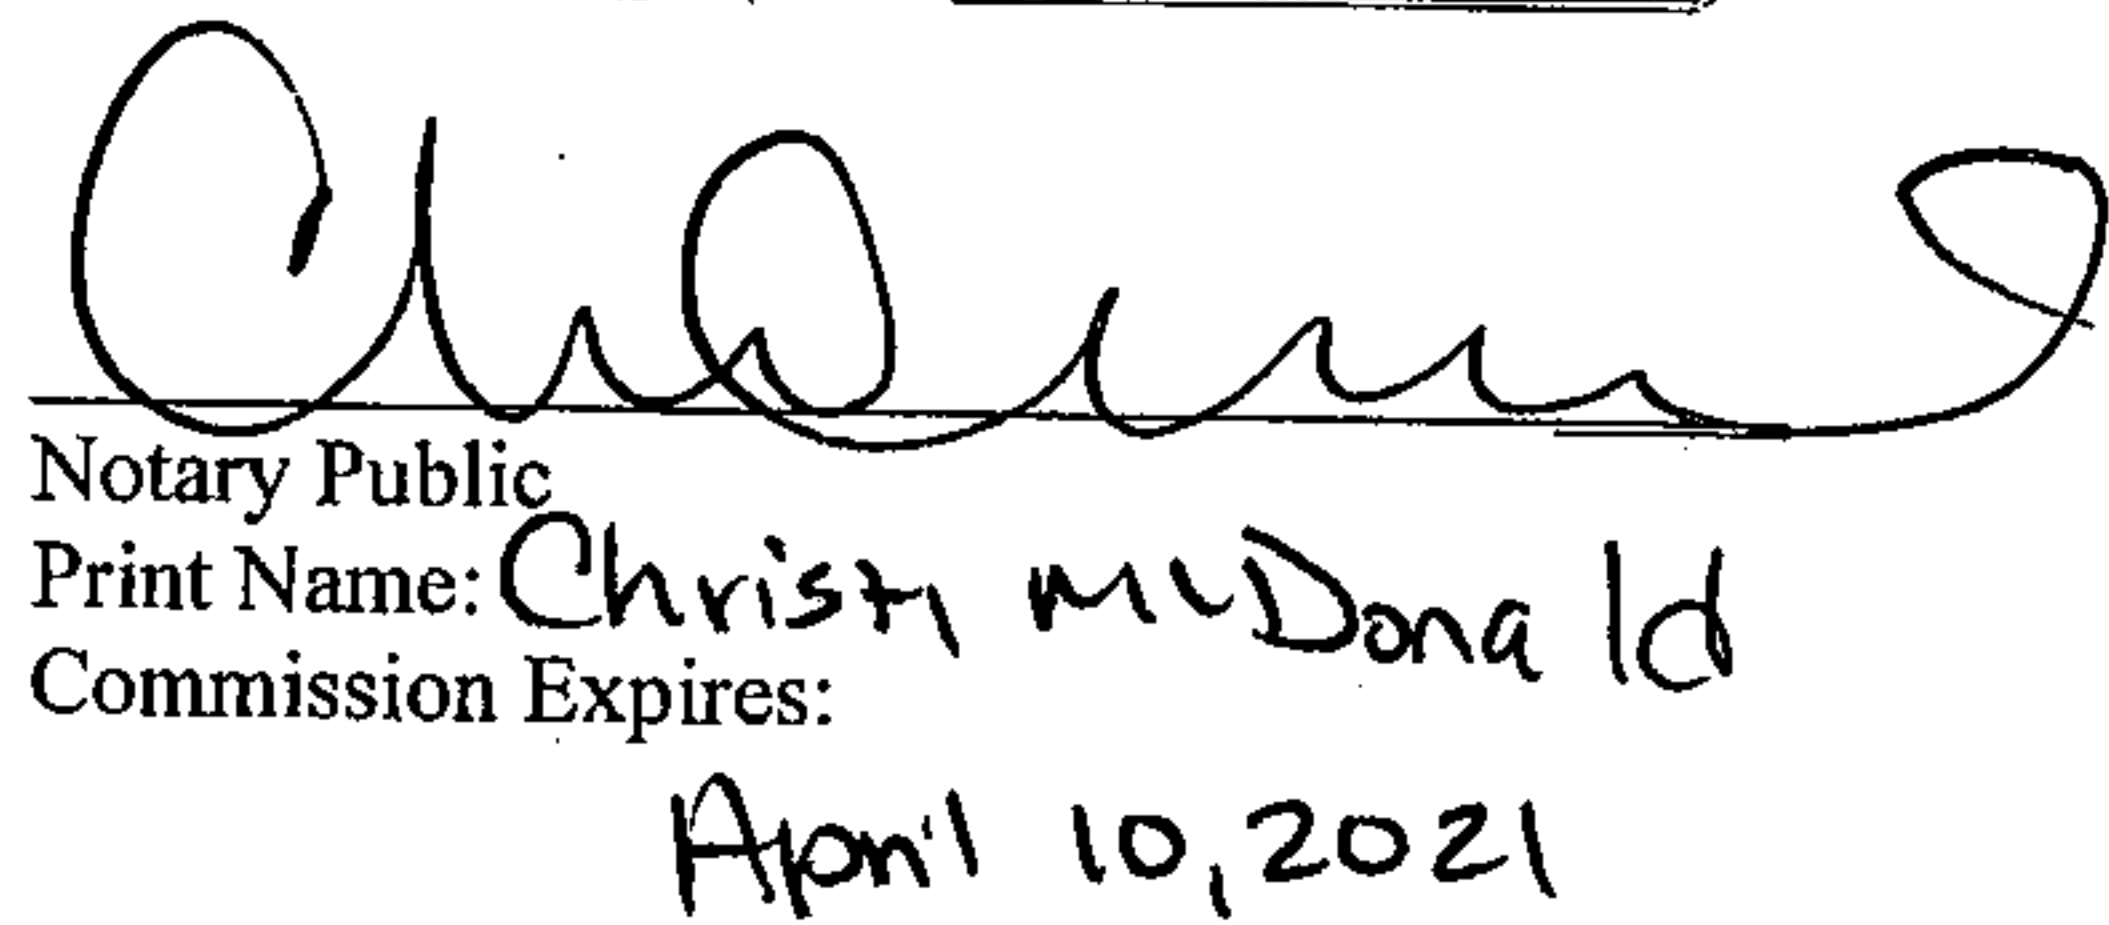 Notary Public
Print Name: Christi McDonald
Commission Expires:
April 10, 2021